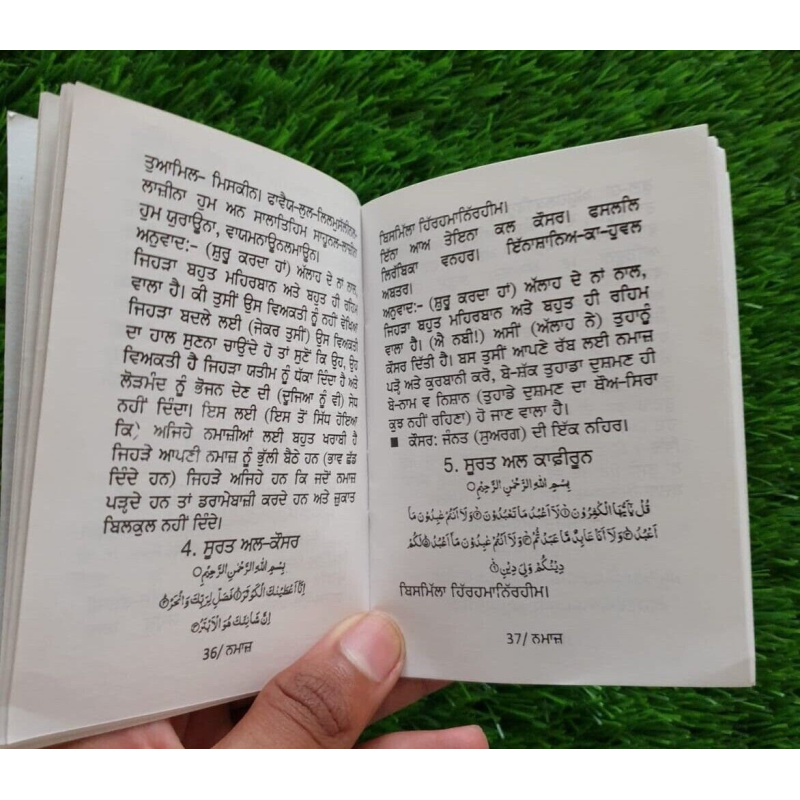 ਤੁਆਮਿਲ- ਮਿਸਕੀਨ। ਫਾਵੈਯ-ਲੁਲ-ਲਿਲਮੁਸੱਲਿਨਲ-
ਲਾਜ਼ੀਨਾ ਹੁਮ ਅਨ ਸਾਲਾਤਿਹਿਮ ਸਾਹੂਨਲ-ਲਾਜ਼ੀਨਾ
ਹੁਮ ਯੁਰਾਊਨਾ, ਵਾਯਮਨਾਊਨਲਮਾਊਨ।
ਅਨੁਵਾਦ:- (ਸ਼ੁਰੂ ਕਰਦਾ ਹਾਂ) ਅੱਲਾਹ ਦੇ ਨਾਂ ਨਾਲ,
ਜਿਹੜਾ ਬਹੁਤ ਮਹਿਰਬਾਨ ਅਤੇ ਬਹੁਤ ਹੀ ਰਹਿਮ
ਵਾਲਾ ਹੈ। ਕੀ ਤੁਸੀਂ ਉਸ ਵਿਅਕਤੀ ਨੂੰ ਨਹੀਂ ਵੇਖਿਆ
ਜਿਹੜਾ ਬਦਲੇ ਲਈ (ਜੇਕਰ ਤੁਸੀਂ) ਉਸ ਵਿਅਕਤੀ
ਦਾ ਹਾਲ ਸੁਣਨਾ ਚਾਉਂਦੇ ਹੋ ਤਾਂ ਸੁਣੋਂ ਕਿ ਉਹ, ਉਹ
ਵਿਅਕਤੀ ਹੈ ਜਿਹੜਾ ਯਤੀਮ ਨੂੰ ਧੱਕਾ ਦਿੰਦਾ ਹੈ ਅਤੇ
ਲੋੜਮੰਦ ਨੂੰ ਭੋਜਨ ਦੇਣ ਦੀ (ਦੂਜਿਆ ਨੂੰ ਵੀ) ਸੇਧ
ਨਹੀਂ ਦਿੰਦਾ। ਇਸ ਲਈ (ਇਸ ਤੋਂ ਸਿੱਧ ਹੋਇਆ
ਕਿ) ਅਜਿਹੇ ਨਮਾਜ਼ੀਆਂ ਲਈ ਬਹੁਤ ਖਰਾਬੀ ਹੈ
ਜਿਹੜੇ ਆਪਣੀ ਨਮਾਜ਼ ਨੂੰ ਭੁੱਲੀ ਬੈਠੇ ਹਨ (ਭਾਵ ਛੱਡ
ਦਿੰਦੇ ਹਨ) ਜਿਹੜੇ ਅਜਿਹੇ ਹਨ ਕਿ ਜਦੋਂ ਨਮਾਜ਼
ਪੜ੍ਹਦੇ ਹਨ ਤਾਂ ਡਰਾਮੇਬਾਜ਼ੀ ਕਰਦੇ ਹਨ ਅਤੇ ਜ਼ੁਕਾਤ
ਬਿਲਕੁਲ ਨਹੀਂ ਦਿੰਦੇ।
4. ਸੂਰਤ ਅਲ-ਕੌਸਰ
بِسْمِ اللهِ الرَّحْمٰنِ الرَّحِيْمِ
اِنَّآ اَعْطَيْنٰكَ الْكَوْثَرَ فَصَلِّ لِرَبِّكَ وَانْحَرْ
اِنَّ شَانِئَكَ هُوَ الْاَبْتَرُ
36/ ਨਮਾਜ਼
ਬਿਸਮਿੱਲਾ ਹਿੱਰਹਮਾਨਿੱਰਹੀਮ।
ਇੰਨਾ ਆਅ ਤੇਇਨਾ ਕਲ ਕੌਸਰ। ਫਸਲਲਿ
ਲਿਰੱਬਿਕਾ ਵਨਹਰ। ਇੰਨਾਸ਼ਾਨਿਅ-ਕਾ-ਹੁਵਲ
ਅਬਤਰ।
ਅਨੁਵਾਦ:- (ਸ਼ੁਰੂ ਕਰਦਾ ਹਾਂ) ਅੱਲਾਹ ਦੇ ਨਾਂ ਨਾਲ,
ਜਿਹੜਾ ਬਹੁਤ ਮਹਿਰਬਾਨ ਅਤੇ ਬਹੁਤ ਹੀ ਰਹਿਮ
ਵਾਲਾ ਹੈ। (ਐ ਨਬੀ!) ਅਸੀਂ (ਅੱਲਾਹ ਨੇ) ਤੁਹਾਨੂੰ
ਕੌਸਰ ਦਿੱਤੀ ਹੈ। ਬਸ ਤੁਸੀਂ ਆਪਣੇ ਰੱਬ ਲਈ ਨਮਾਜ਼
ਪੜ੍ਹੋ ਅਤੇ ਕੁਰਬਾਨੀ ਕਰੋ, ਬੇ-ਸ਼ੱਕ ਤੁਹਾਡਾ ਦੁਸ਼ਮਣ ਹੀ
ਬੇ-ਨਾਮ ਵ ਨਿਸ਼ਾਨ (ਤੁਹਾਡੇ ਦੁਸ਼ਮਣ ਦਾ ਥੌਅ-ਸਿਰਾ
ਕੁਝ ਨਹੀਂ ਰਹਿਣਾ) ਹੋ ਜਾਣ ਵਾਲਾ ਹੈ।
■ ਕੌਸਰ: ਜੰਨਤ (ਸੁਅਰਗ) ਦੀ ਇੱਕ ਨਹਿਰ।
5. ਸੂਰਤ ਅਲ ਕਾਫ਼ੀਰੂਨ
بِسْمِ اللهِ الرَّحْمٰنِ الرَّحِيْمِ
قُلْ يٰٓاَيُّهَا الْكٰفِرُوْنَ لَآ اَعْبُدُ مَا تَعْبُدُوْنَ وَلَآ اَنْتُمْ عٰبِدُوْنَ مَآ
اَعْبُدُ وَلَآ اَنَا عَابِدٌ مَّا عَبَدْتُّمْ وَلَآ اَنْتُمْ عٰبِدُوْنَ مَآ اَعْبُدُ لَكُمْ
دِيْنُكُمْ وَلِيَ دِيْنِ
ਬਿਸਮਿੱਲਾ ਹਿੱਰਹਮਾਨਿੱਰਹੀਮ।
37/ ਨਮਾਜ਼